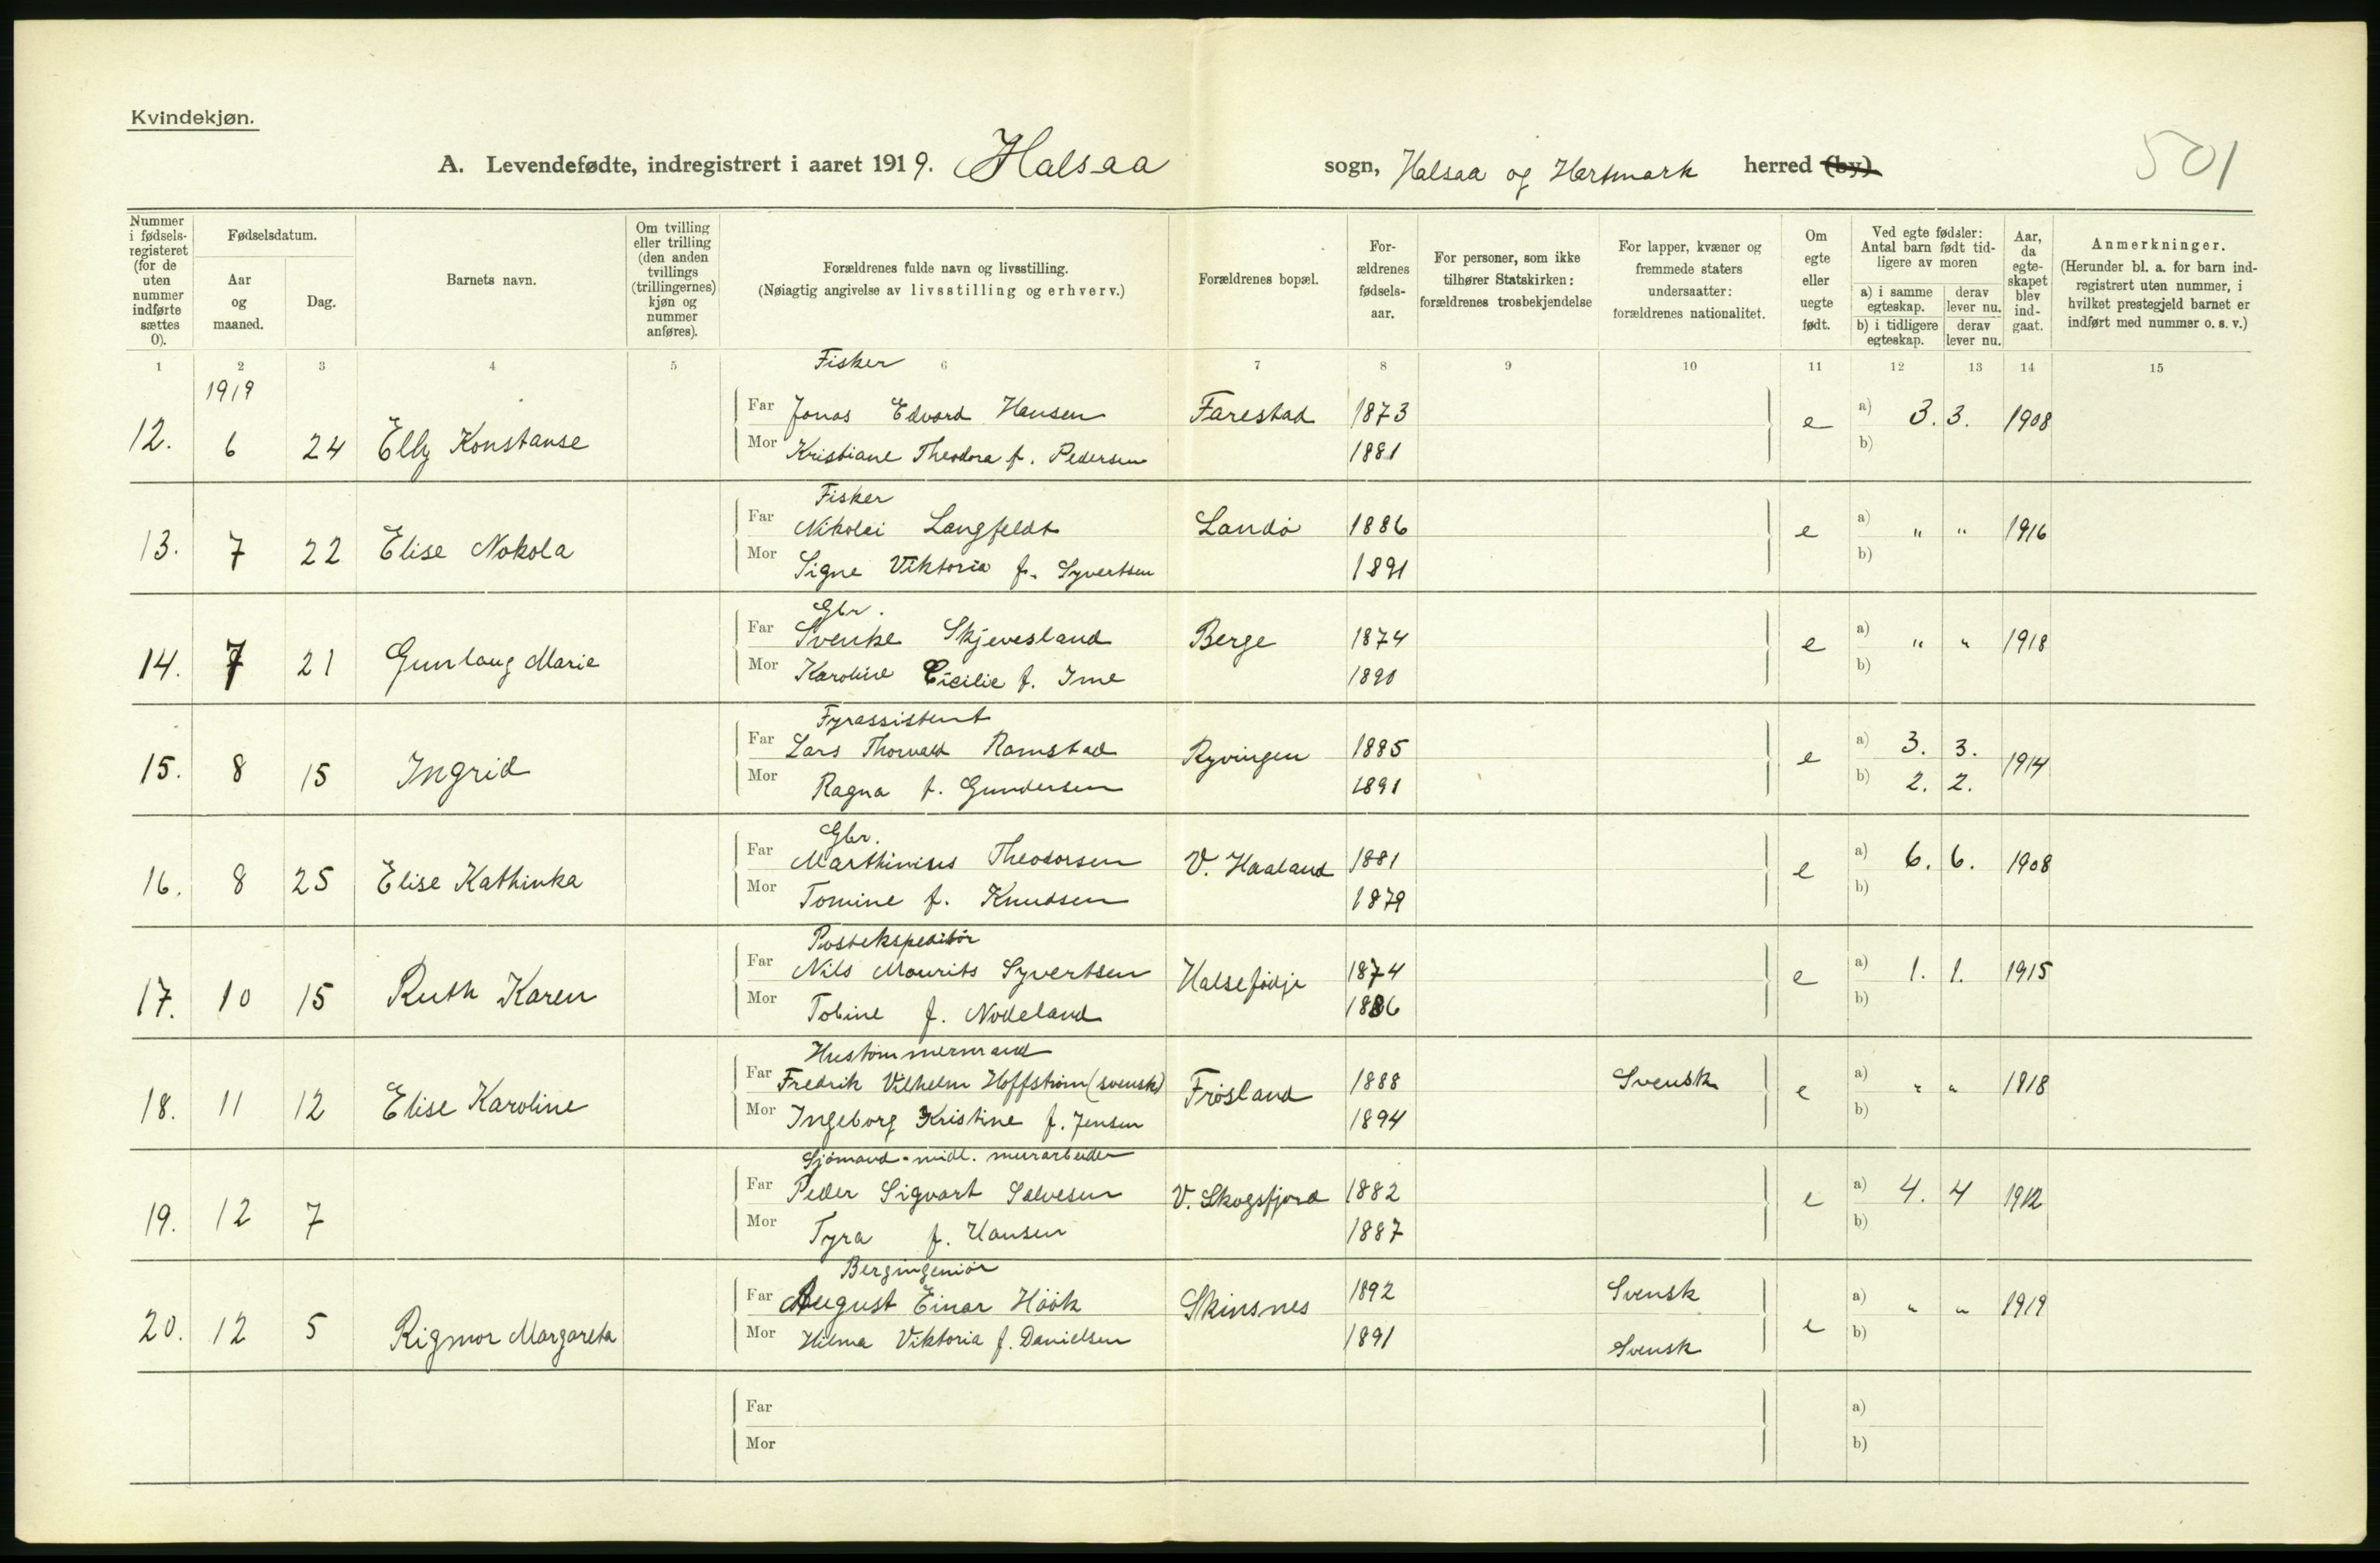 Kvindekjøn.
A. Levendefødte, indregistrert i aaret 1919. Halsaa sogn, Halsaa og Hartmark herred (by)
501
Nummer i fødselsregisteret (for de uten nummer indførte sættes 0).
Fødselsdatum.
Aar og maaned.
Dag.
Barnets navn.
Om tvilling eller trilling (den anden tvillings (trillingernes) kjøn og nummer anføres).
Forældrenes fulde navn og livsstilling.
(Nøiagtig angivelse av livsstilling og erhverv.)
Forældrenes bopæl.
Forældrenes fødselsaar.
For personer, som ikke tilhører Statskirken: forældrenes trosbekjendelse
For lapper, kvæner og fremmede staters undersaatter: forældrenes nationalitet.
Om egte eller uegte født.
Ved egte fødsler: Antal barn født tidligere av moren
a) i samme egteskap. derav lever nu.
b) i tidligere egteskap. derav lever nu.
Aar, da egteskapet blev indgaat.
Anmerkninger.
(Herunder bl. a. for barn indregistrert uten nummer, i hvilket prestegjeld barnet er indført med nummer o. s. v.)
1 2 3 4 5 6 7 8 9 10 11 12 13 14 15
1919
Fisker
12. 6 24 Elly Konstanse Far Jonas Edvard Hansen Farestad 1873 e a) 3. 3. 1908
Mor Kristiane Theodora f. Pedersen 1881 b)
Fisker
13. 7 22 Elise Nokola Far Nikolai Langfeldt Landö 1886 e a) " " 1916
Mor Signe Viktoria f. Syvertsen 1891 b)
Gbr.
14. 7 21 Gunlaug Marie Far Svenke Skjevesland Berge 1874 e a) " " 1918
Mor Karoline Cicilie f. Ime 1890 b)
Fyrassistent
15. 8 15 Ingrid Far Lars Thorvald Ramstad Ryvingen 1885 e a) 3. 3. 1914
Mor Ragna f. Gundersen 1891 b) 2. 2.
Gbr.
16. 8 25 Elise Kathinka Far Marthinius Theodorsen V. Haaland 1881 e a) 6. 6. 1908
Mor Tomine f. Knudsen 1879 b)
Postekspeditör
17. 10 15 Ruth Karen Far Nils Mourits Syvertsen Halsefödje 1874 e a) 1. 1. 1915
Mor Tobine f. Nodeland 1886 b)
Hustömmermand
18. 11 12 Elise Karoline Far Fredrik Vilhelm Hoffström (svensk) Frösland 1888 Svensk e a) " " 1918
Mor Ingeborg Kristine f. Jensen 1894 b)
Sjömand - midl. murarbeider
19. 12 7 Far Peder Sigvart Salvesen V. Skogsfjord 1882 e a) 4. 4 1912
Mor Tyra f. Hansen 1887 b)
Bergingeniör
20. 12 5 Rigmor Margareta Far August Einar Höök Skinsnes 1892 Svensk e a) " " 1919
Mor Hilma Viktoria f. Danielsen 1891 Svensk b)
Far a)
Mor b)